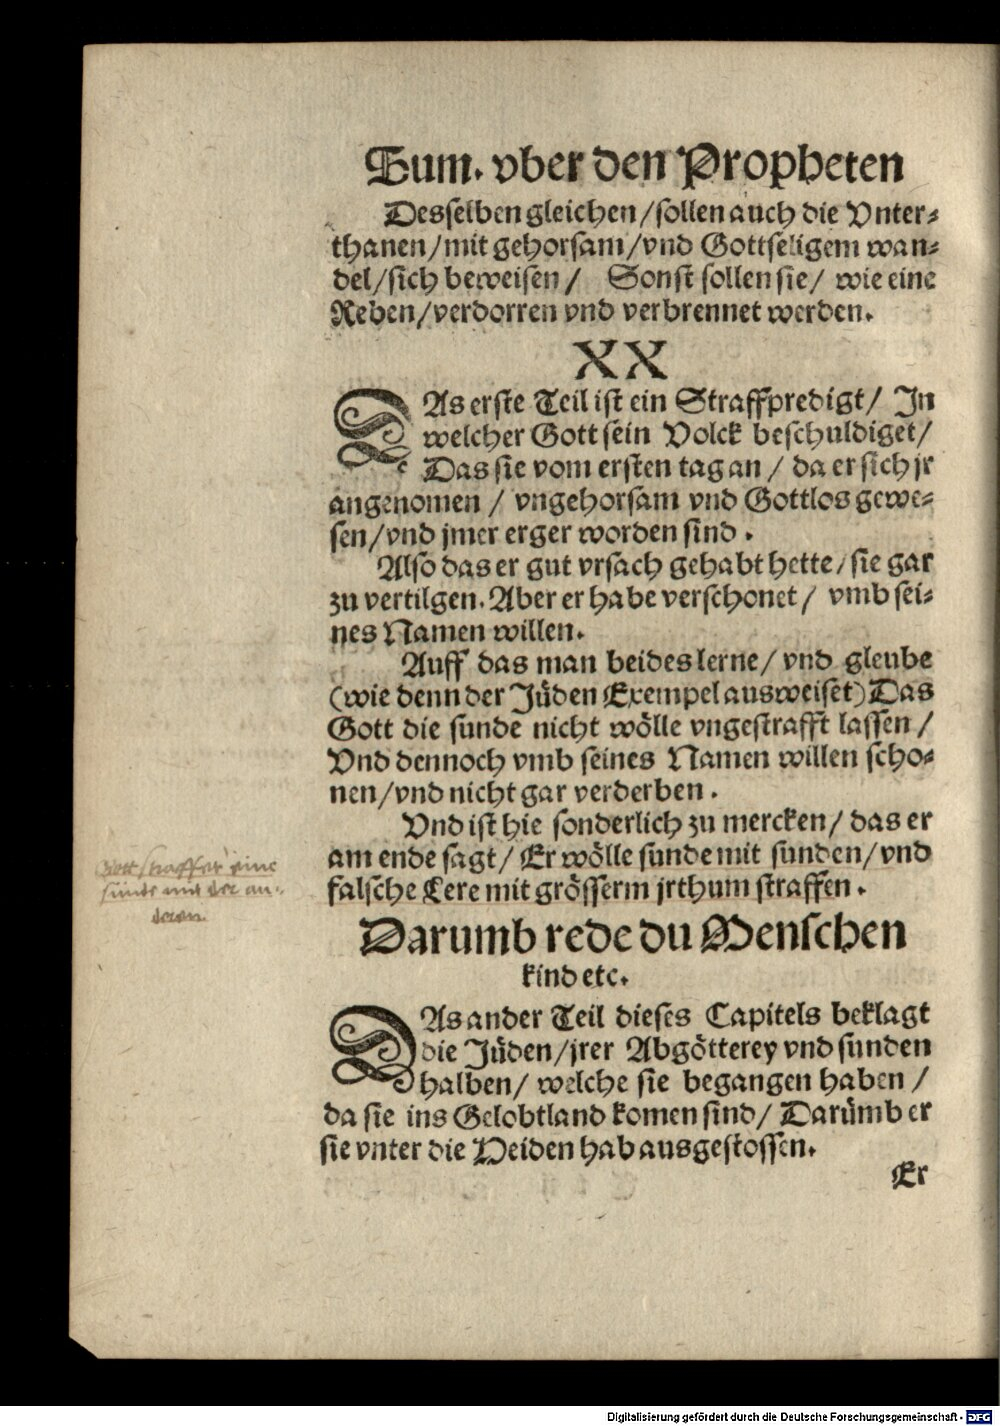 Sum. vber den Propheten
Desselben gleichen / sollen auch die Vnter-
thanen / mit gehorsam / vnd Gottseligem wan-
del / sich beweisen / Sonst sollen sie / wie eine
Reben / verdorren vnd verbrennet werden.
XX
DAs erste Teil ist ein Straffpredigt / In
welcher Gott sein Volck beschuldiget /
Das sie vom ersten tag an / da er sich jr
angenomen / vngehorsam vnd Gottlos gewe-
sen / vnd jmer erger worden sind.
Also das er gut vrsach gehabt hette / sie gar
zu vertilgen. Aber er habe verschonet / vmb sei-
nes Namen willen.
Auff das man beides lerne / vnd gleube
(wie denn der Jüden Exempel ausweiset) Das
Gott die sunde nicht wölle vngestrafft lassen /
Vnd dennoch vmb seines Namen willen scho-
nen / vnd nicht gar verderben.
Vnd ist hie sonderlich zu mercken / das er
am ende sagt / Er wölle sunde mit sunden / vnd
falsche Lere mit grösserm jrthum straffen.
Gott straffet eine
sünde mit der an-
dern.
Darumb rede du Menschen
kind etc.
DAs ander Teil dieses Capitels beklagt
die Jüden / jrer Abgötterey vnd sunden
halben / welche sie begangen haben /
da sie ins Gelobtland komen sind / Darümb er
sie vnter die Heiden hab ausgestossen.
Er
Digitalisierung gefördert durch die Deutsche Forschungsgemeinschaft - DFG